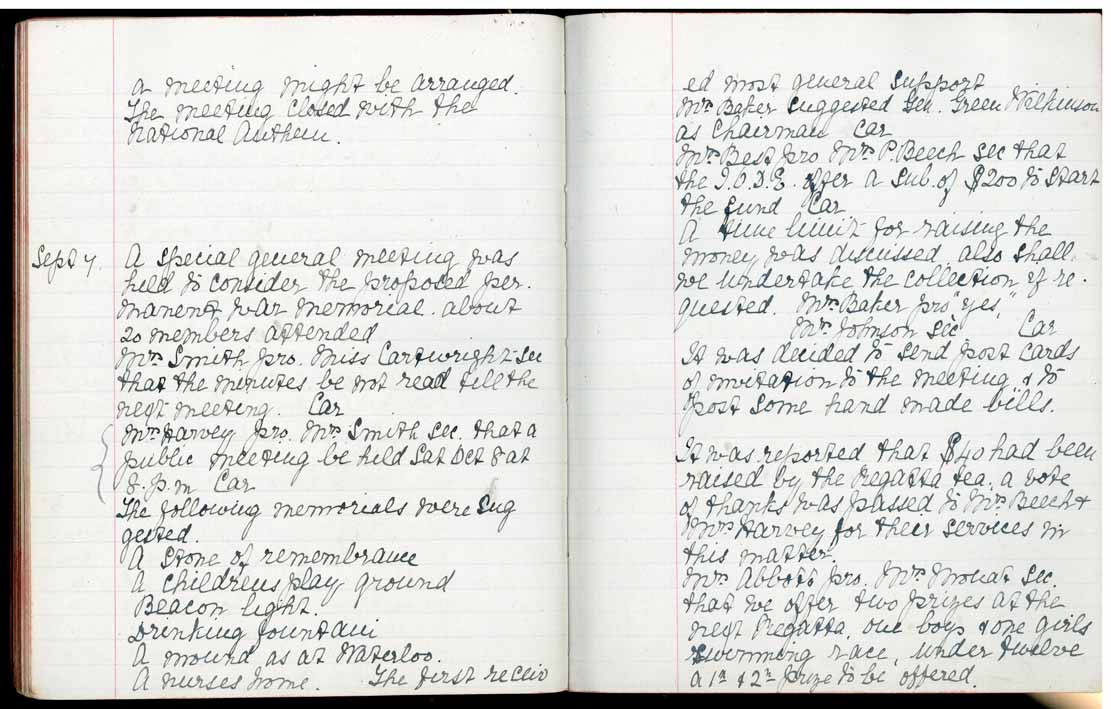 a meeting might be arranged.
The meeting closed with the
National Anthem.
Sept 7. A special general meeting was
held to consider the proposed per.
manent war memorial. about
20 members attended
Mrs Smith pro. Miss Cartwright sec
that the minutes be not read till the
next meeting. Car
Mrs Harvey pro. Mrs Smith sec. that a
public meeting be held Sat Oct 8 at
8. p.m Car
The following memorials were sug
gested.
A stone of remembrance
A childrens play ground
Beacon light.
Drinking fountain
A mound as at Waterloo.
A nurses home. The first receiv
ed most general support
Mrs Baker suggested Gen. Green Wilkinson
as chairman Car
Mrs Best pro Mrs P. Beech sec that
the I.O.D.E. offer a sub. of $200 to start
the fund Car
A time limit for raising the
money was discussed, also shall
we undertake the collection if re.
quested. Mrs Baker pro "yes,"
Mrs Johnson sec Car
It was decided to send post cards
of invitation to the meeting & to
post some hand made bills.
It was reported that $40 had been
raised by the Regatta tea. a vote
of thanks was passed to Mrs Beech &
Mrs Harvey for their services in
this matter.
Mrs Abbott pro. Mrs Mouat sec.
that we offer two prizes at the
next Regatta, one boys & one girls
swimming race, under twelve
a 1st & 2nd prize to be offered.